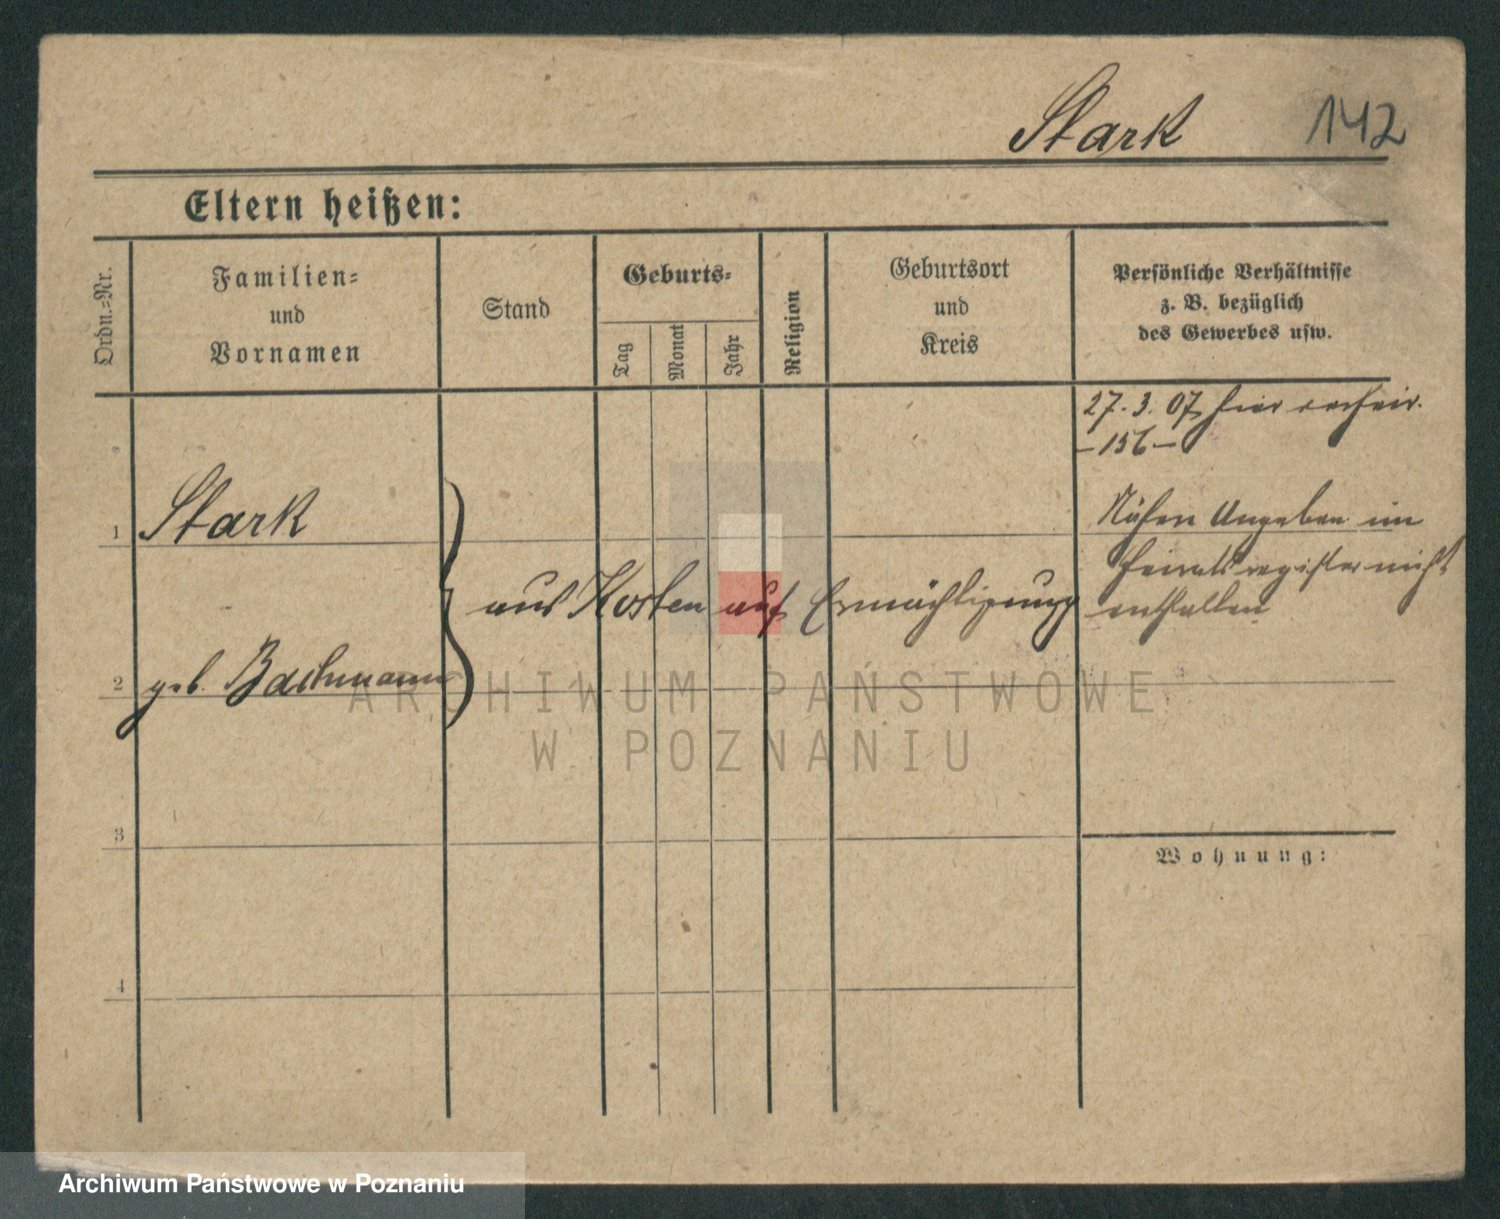 Stark 142
Eltern heißen:
Ordn.=Nr.
Familien=
und
Vornamen
Stand
Geburts=
Tag
Monat
Jahr
Religion
Geburtsort
und
Kreis
Persönliche Verhältnisse
z. B. bezüglich
des Gewerbes usw.
27. 3. 07 hier verheir.
- 156 -
1 Stark
Nähere Angaben im
Heiratsregister nicht
aus Kosten auf Ermächtigung enthalten
2 geb. Bachmann
ARCHIWUM PAŃSTWOWE
W POZNANIU
3
Wohnung:
4
Archiwum Państwowe w Poznaniu